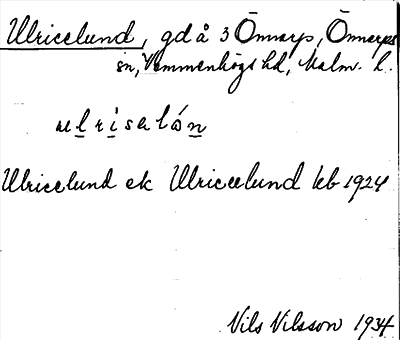 Ulricelund, gd å 3 Önnarp, Önnarps
sn, Vemmenhögs hd, Malm. l.
ulrisalón
Ulricelund ek Ulricelund kb 1924
Nils Nilsson 1934